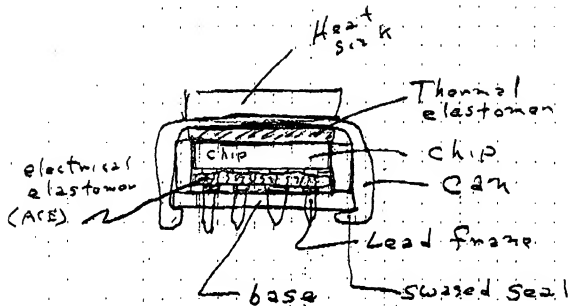 Heat
sink
Thermal
elastomer
chip
chip
can
electrical
elastomer
(ACE)
Lead frame
base
swaged seal